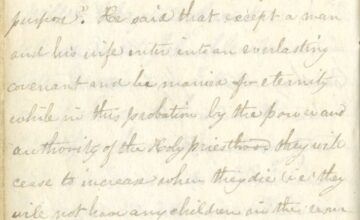 purpose". He said that except a man
and his wife enter into an everlasting
covenant and be married for eternity
while in this probation by the power and
authority of the Holy priesthood they will
cease to increase when they die i.e. they
will not have any children in the